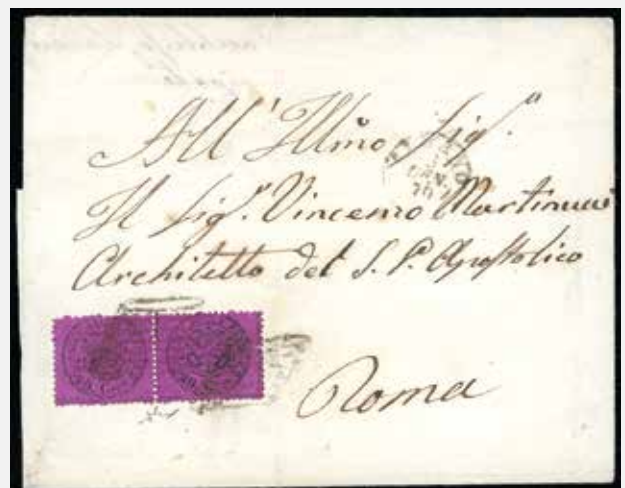 All' Illmo Sigr.
Il Sigr. Vincenzo Martinucci
Architetto del S. P. Apostolico
Roma
GEN.
70